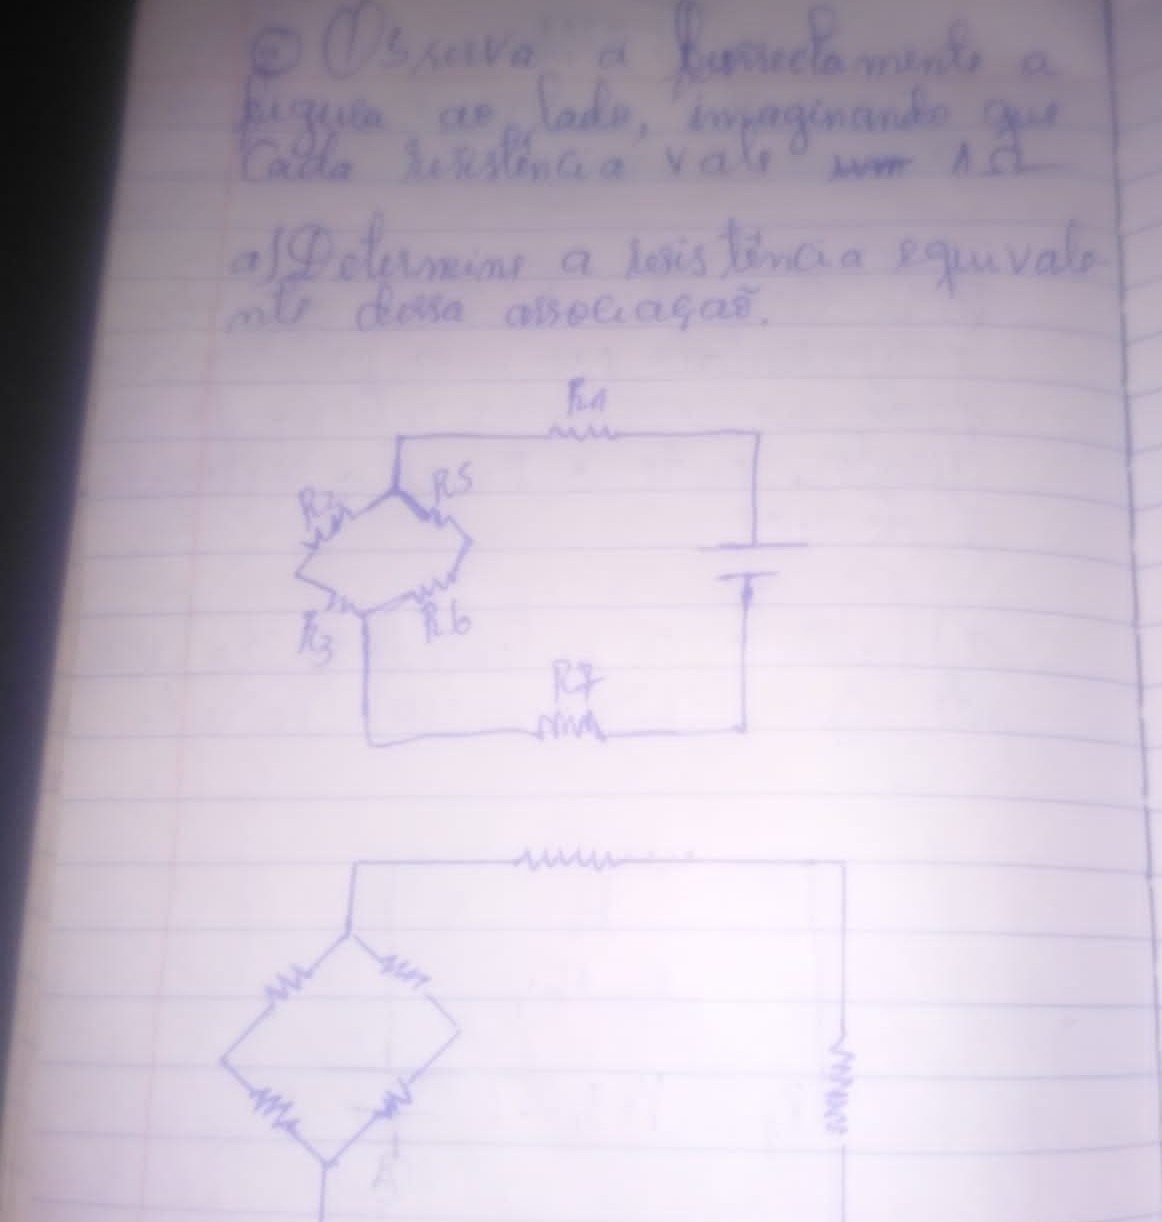 Observa a correctamente a
figura ao lado, imaginando que
Cada resistência vale 1Ω
a) Determine a resistência equivale
nte dessa associação.
R1
R2 R5
R3 R6
R7